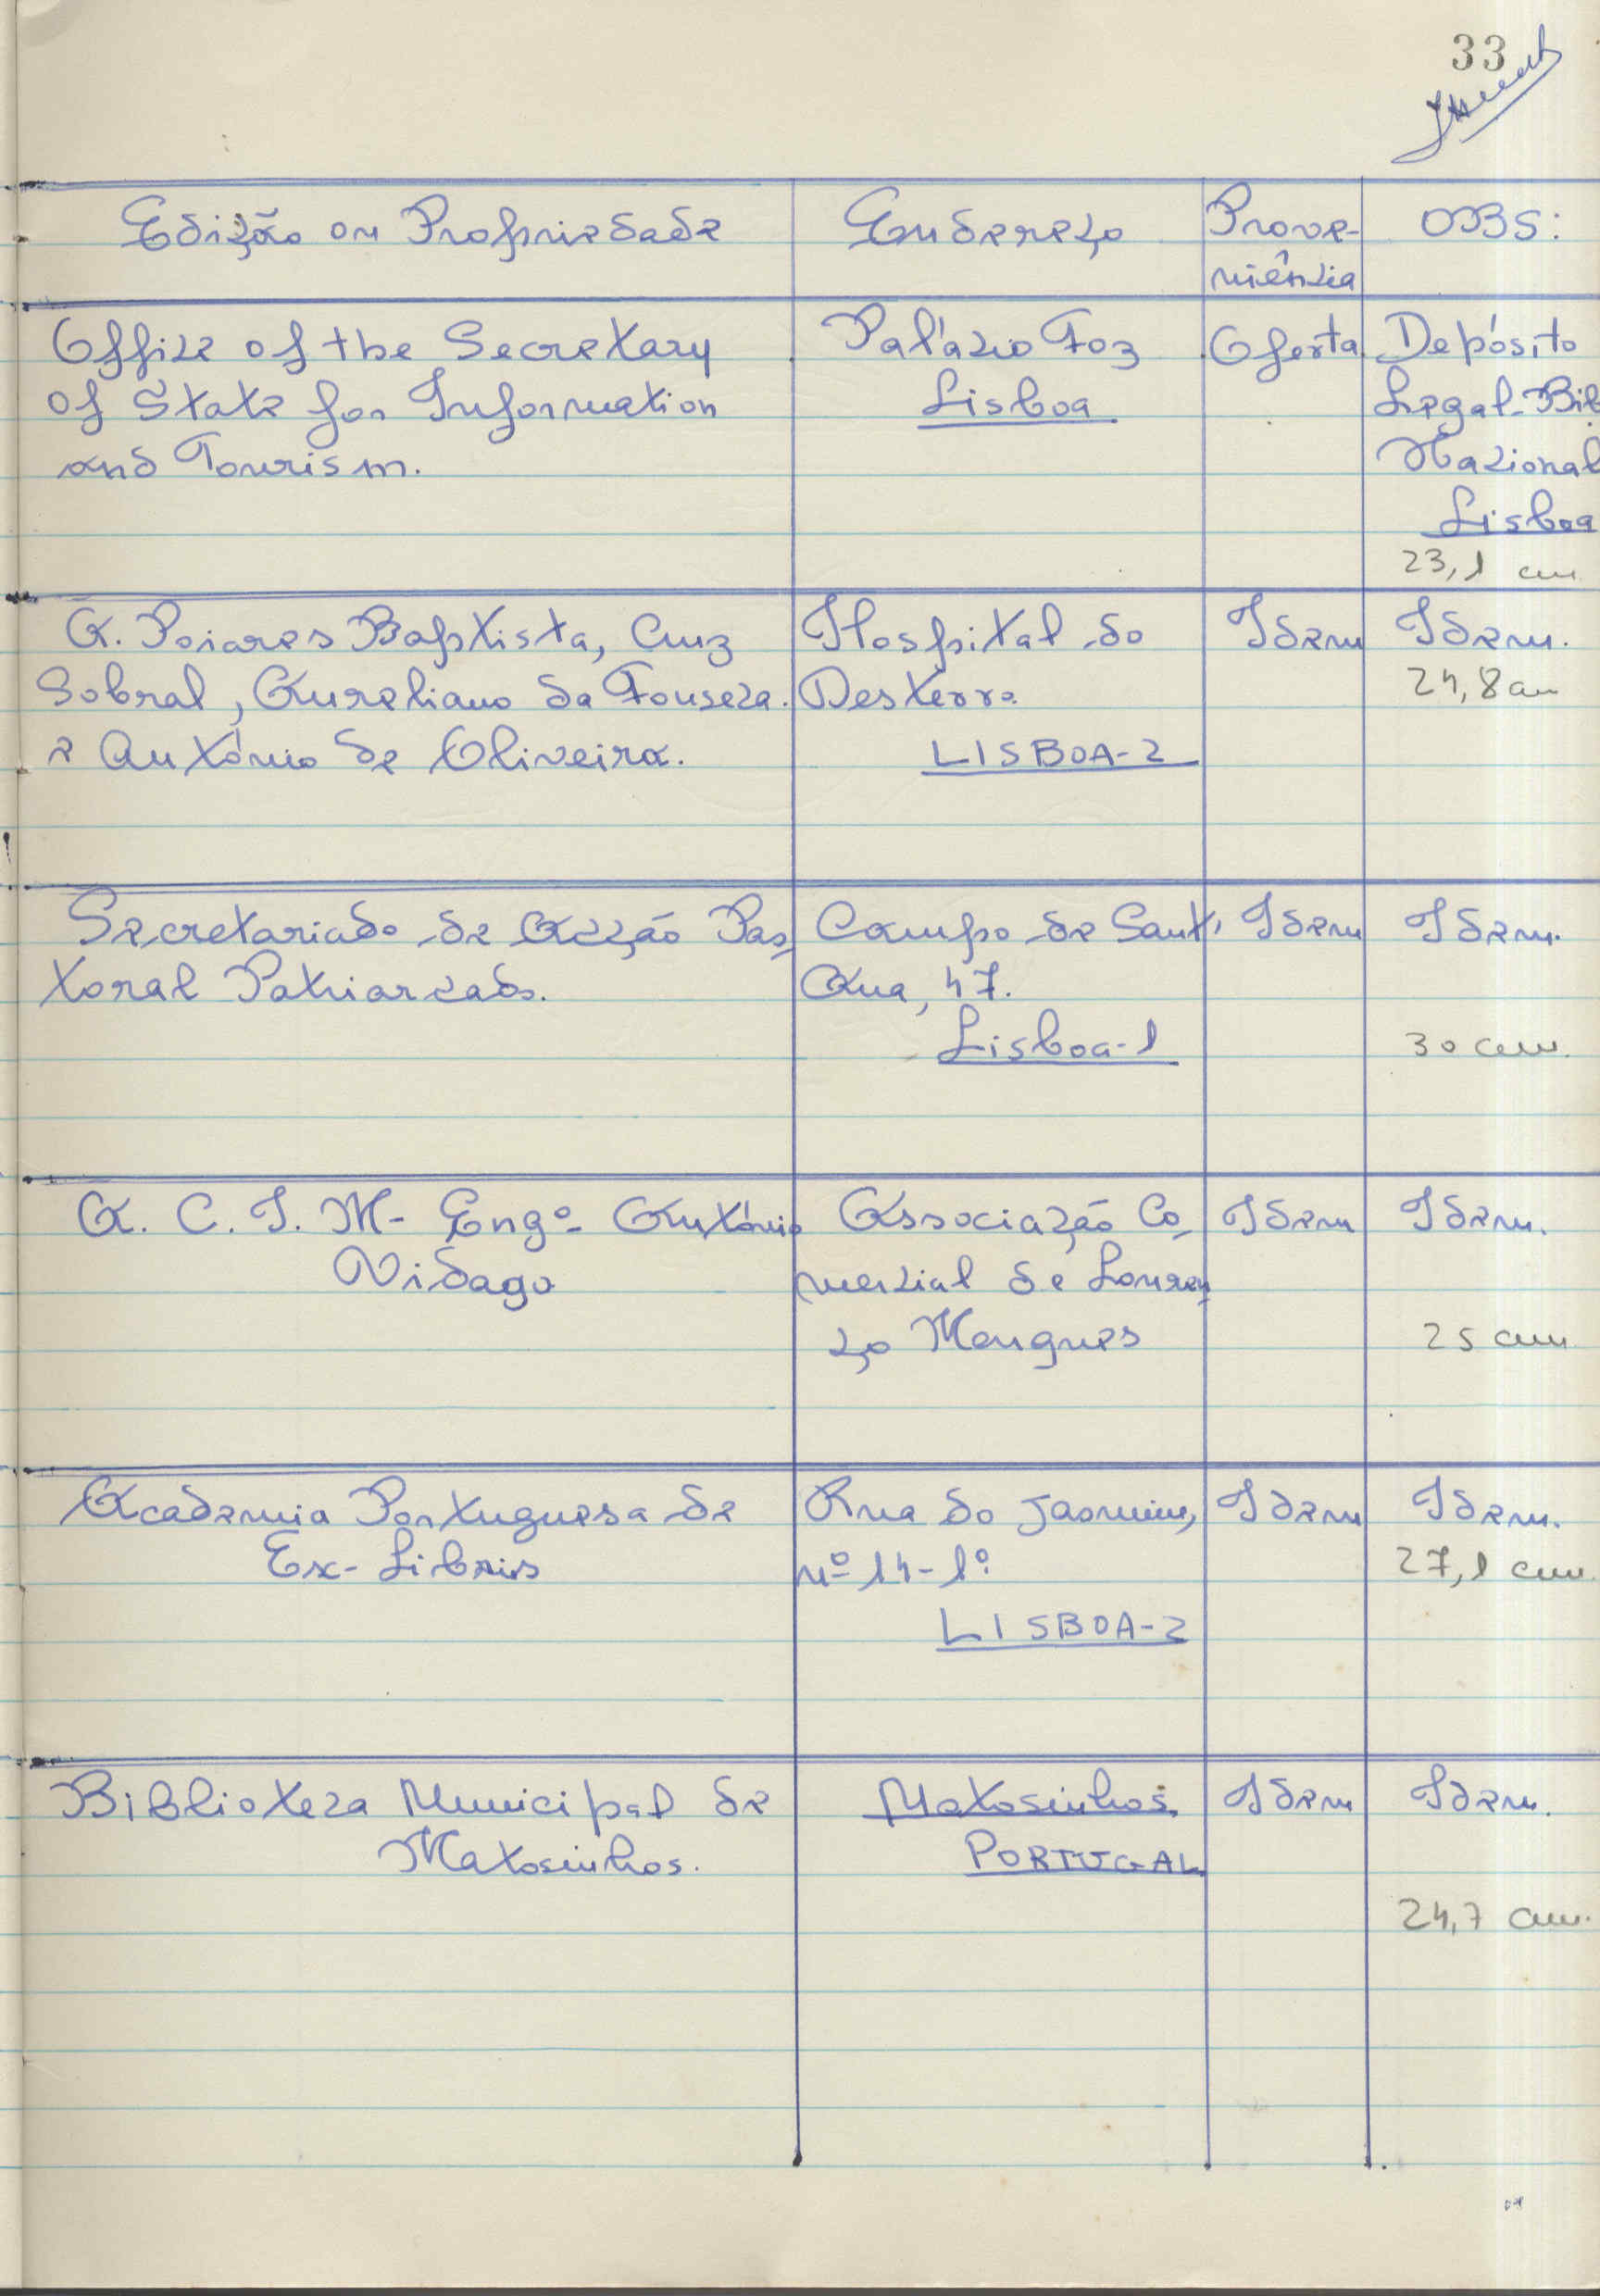 33
Edição ou Propriedade
Endereço
Prove-
niência
OBS:
Office of the Secretary
of State for Information
and Tourism.
Palácio Foz
Lisboa
Oferta
Depósito
Legal-Bib
Nacional
Lisboa
23,1 cm
A. Poiares Baptista, Cruz
Sobral, Aureliano da Fonseca.
e António de Oliveira.
Hospital do
Desterro.
LISBOA-2
Idem
Idem.
24,8 cm
Secretariado de Acção Pas,
toral Patriarcado.
Campo de Sant'
Ana, 47.
Lisboa-1
Idem
Idem.
30 cm.
A. C. I. M- Engº- António
Vidago
Associação Co,
mercial de Louren,
ço Marques
Idem
Idem.
25 cm
Academia Portuguesa de
Ex-Libris
Rua do Jasmim,
nº 14-1º
LISBOA-2
Idem
Idem.
27,1 cm.
Biblioteca Municipal de
Matosinhos.
Matosinhos.
PORTUGAL
Idem
Idem.
24,7 cm.